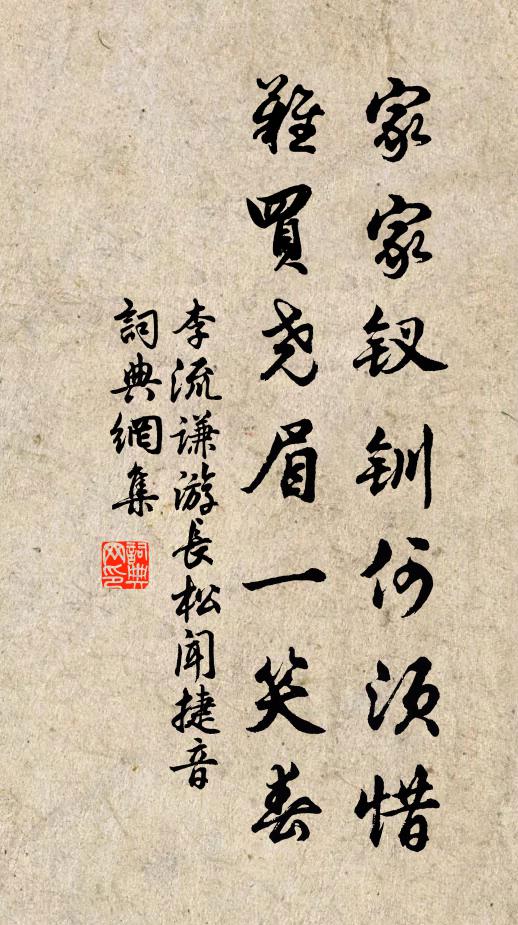 家家钗钏何须惜
難買尧眉一笑春
李流谦游長松闻捷音
詞典網集
詞典网印